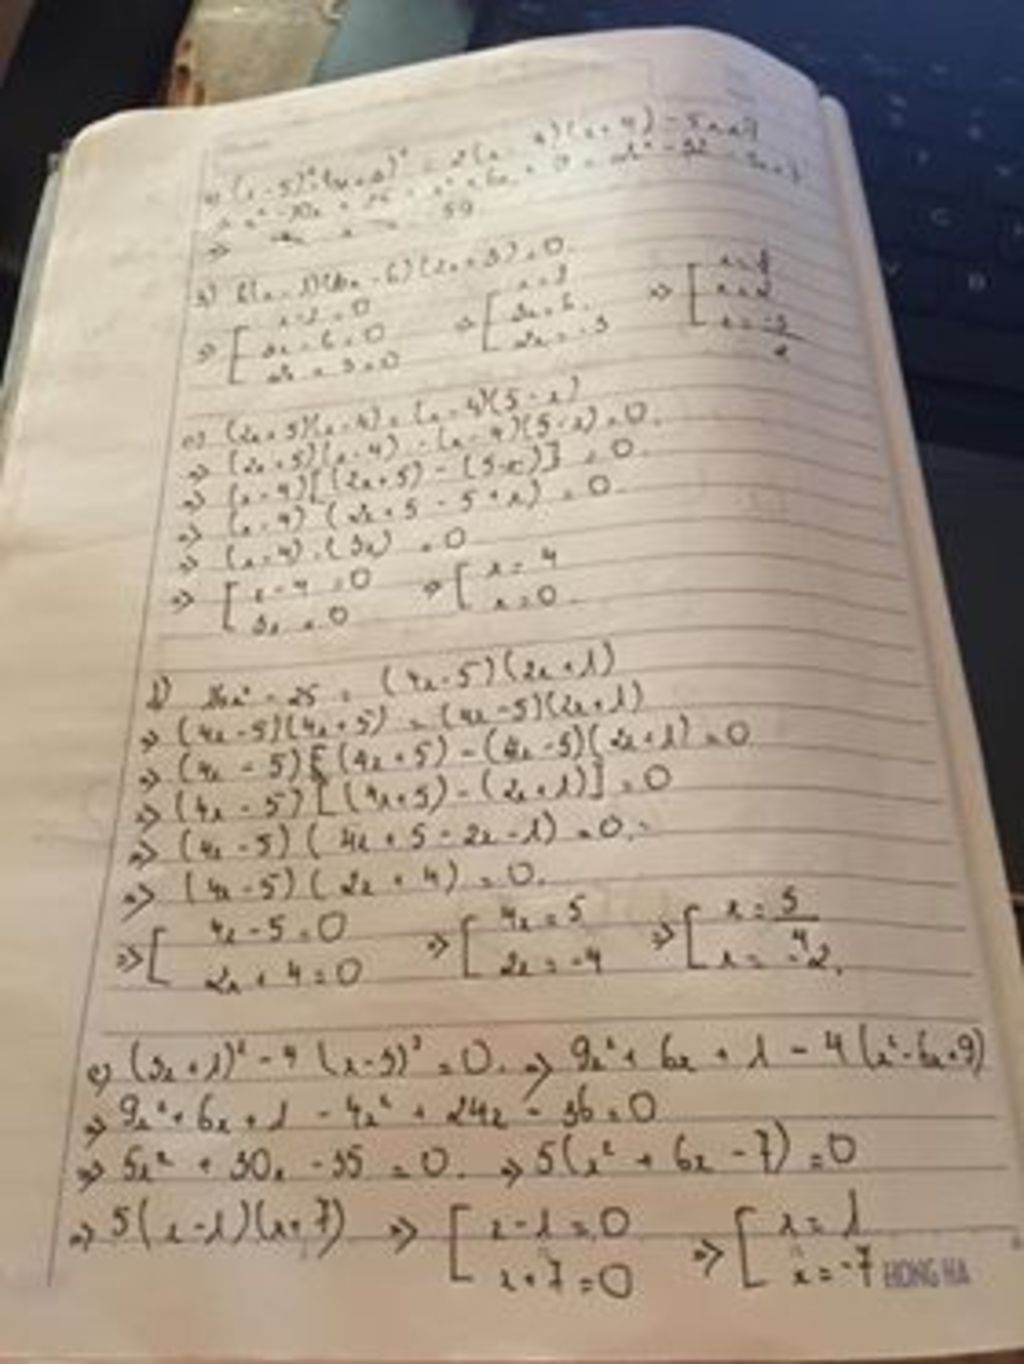 (x-5)² + (x+3)² = 2(x-4)(x+4) - 5x+7
=> 59
b) (x-1)(3x-6)(2x+3)=0.
=> [ x-1=0 => [ x=1 => [ x=1
3x-6=0 3x=6 x=2
2x+3=0 2x=-3 x=-3/2
c) (2x+5)(x-4) = (x-4)(5-x)
=> (2x+5)(x-4) - (x-4)(5-x)=0.
=> (x-4)[(2x+5)-(5-x)] = 0
=> (x-4) (2x+5-5+x) = 0
=> (x-4).(3x) = 0
=> [ x-4=0 => [ x=4
3x=0 x=0
d) 16x²-25 = (4x-5)(2x+1)
=> (4x-5)(4x+5) = (4x-5)(2x+1)
=> (4x-5)[(4x+5)-(4x-5)(2x+1)=0
=> (4x-5)[(4x+5)-(2x+1)]=0
=> (4x-5)(4x+5-2x-1)=0.
=> (4x-5)(2x+4)=0.
=> [ 4x-5=0 => [ 4x=5 => [ x=5/4
2x+4=0 2x=-4 x=-2.
e) (3x+1)²-4(x-3)²=0. => 9x²+6x+1-4(x²-6x+9)
=> 9x²+6x+1-4x²+24x-36=0
=> 5x²+30x-35=0. => 5(x²+6x-7)=0
=> 5(x-1)(x+7) => [ x-1=0 => [ x=1
x+7=0 x=-7 HONG HA